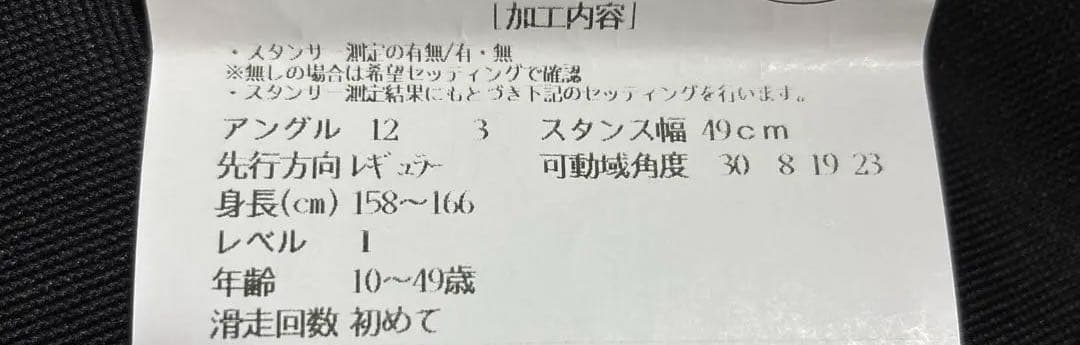 [加工内容]
・スタンサー測定の有無/有・無
※無しの場合は希望セッティングで確認
・スタンサー測定結果にもとづき下記のセッティングを行います。
アングル 12 3 スタンス幅 49cm
先行方向 レギュラー 可動域角度 30 8 19 23
身長(cm) 158〜166
レベル 1
年齢 10〜49歳
滑走回数 初めて